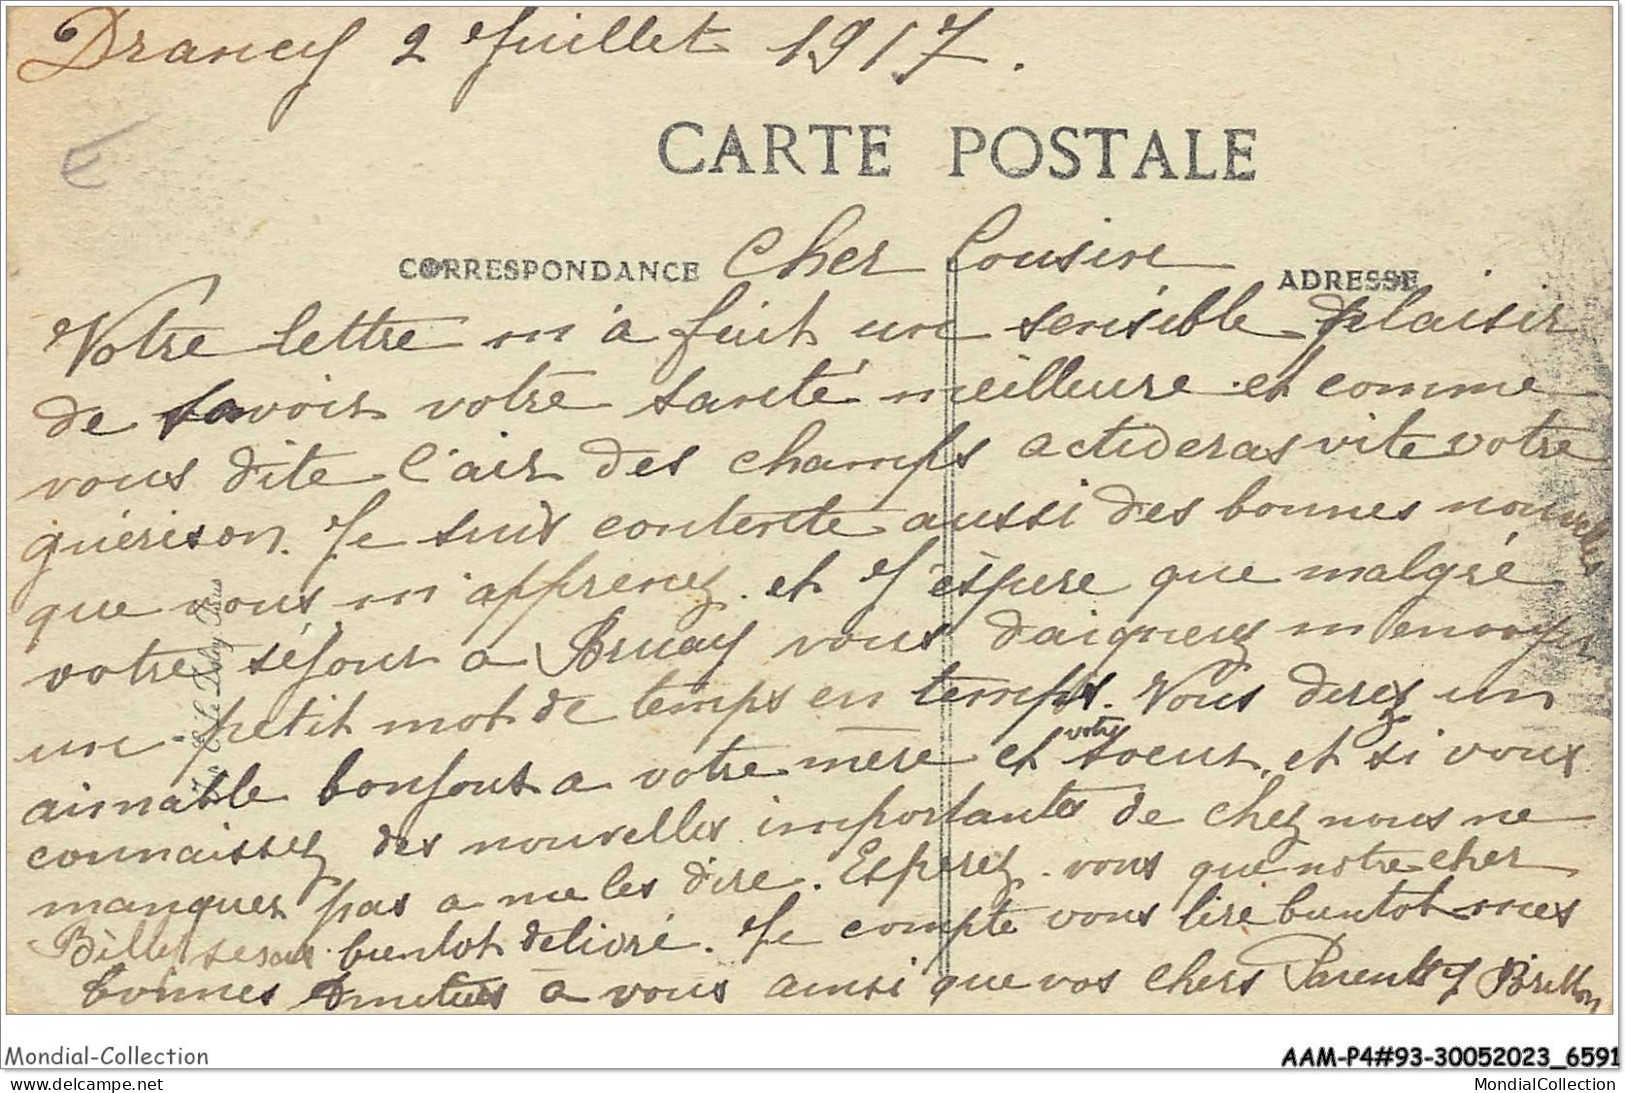 Drancy 2 Juillet 1917.
CARTE POSTALE
CORRESPONDANCE Cher Cousin ADRESSE
Votre lettre m'a fait un sensible plaisir
de savoir votre santé meilleure et comme
vous dite l'air des champs activeras vite votre
guérison. Je suis contente aussi des bonnes nouvelles
que vous m'apprenez. et J'espere que malgré
votre séjour a Bruay vous daignerez m'envoyer
un petit mot de temps en temps. Vous direz un
aimable bonjour a votre mère et votre soeur, et si vous
connaissez des nouvelles importantes de chez nous ne
manquez pas a me les dire. Esperez vous que notre cher
Billy seras bientot delivré. Je compte vous lire bientot mes
bonnes amities à vous ainsi que vos chers Parents J Brillon
Mondial-Collection
AAM-P4#93-30052023_6591
www.delcampe.net
MondialCollection